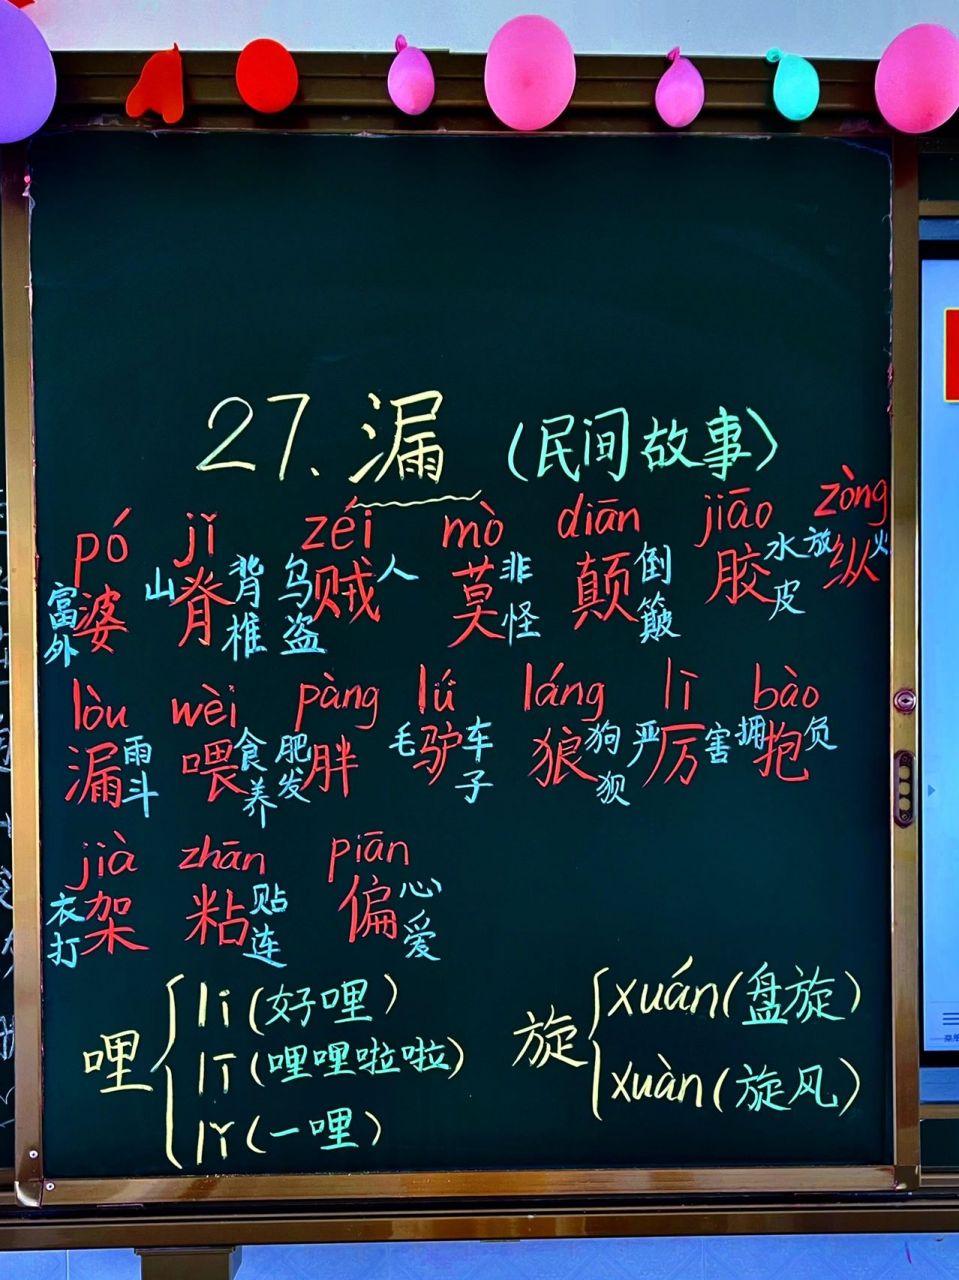 27、漏 (民间故事)
pó jǐ zéi mò diān jiāo zòng
富外婆 山脊背椎 乌盗贼人 莫非怪 颠倒簸 胶水皮 放纵火
lòu wèi pàng lǘ láng lì bào
漏雨斗 喂食养 肥发胖 毛驴车子 狼狗狈 严厉害 拥抱负
jià zhān piān
衣打架 粘贴连 偏心爱
哩 li (好哩)
lī (哩哩啦啦)
lǐ (一哩)
旋 xuán (盘旋)
xuàn (旋风)